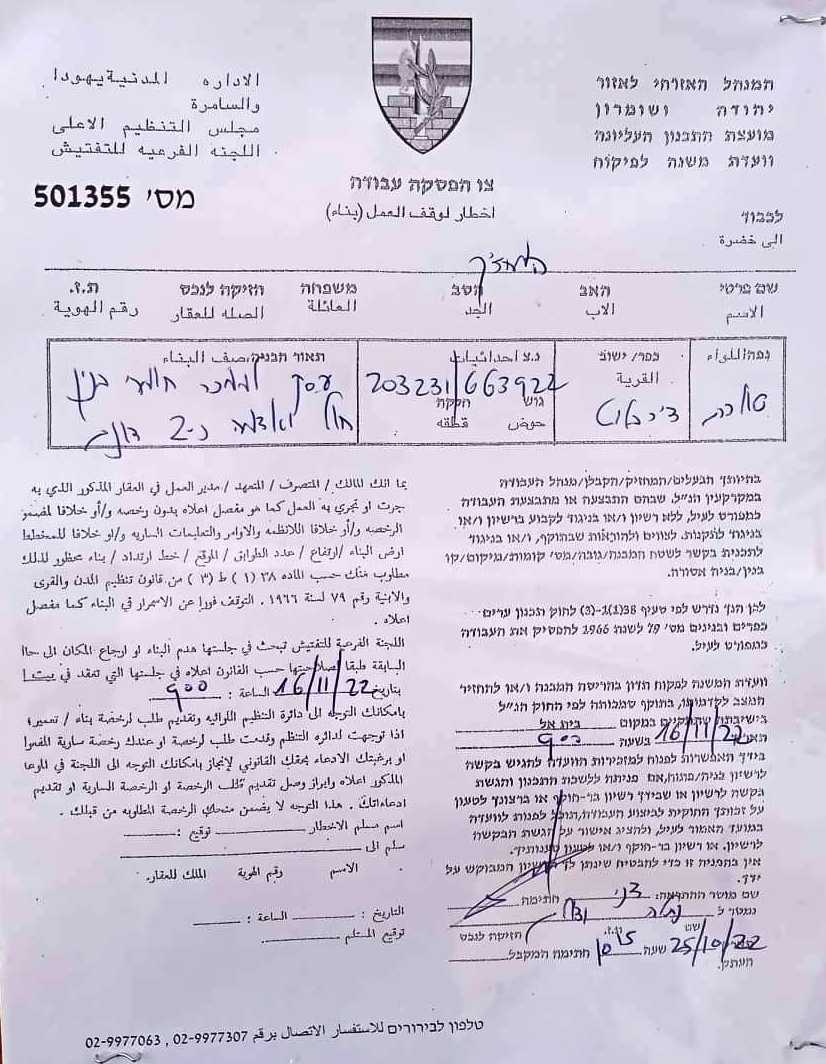 המנהל האזרחי לאזור
יהודה ושומרון
מועצת התכנון העליונה
וועדת משנה לפיקוח
الاداره المدنية يهودا
والسامرة
مجلس التنظيم الاعلى
اللجنه الفرعيه للتفتيش
מס' 501355
צו הפסקת עבודה
اخطار لوقف العمل (بناء)
לכבוד
الى حضرة
המחזיק
שם פרטי האב הסב משפחה חזיקה לנכס ת.ז.
الاسم الاب الجد العائلة الصله للعقار رقم الهوية
נפה/اللواء כפר/ישוב נ.צ احداثيات תאור הבניה/وصف البناء
القرية
טול כרם דיר בלוט 203231/663922
גוש חלקה
حوض قطعه
עסק לממכר חומרי בנין
חול ואדמה כ-2 דונם
בהיותך הבעלים/המחזיק/הקבלן/מנהל העבודה
במקרקעין הנ"ל, שבהם התבצעה או מתבצעת העבודה
כמפורט לעיל, ללא רשיון ו/או בניגוד לקבוע ברשיון ו/או
בניגוד לתקנות, לצווים ולהוראות שבתוקף, ו/או בניגוד
לתכנית בקשר לשטח המבנה/גובה/מס' קומות/מיקום/קו
בנין/בניה אסורה.
לכן הנך נדרש לפי סעיף 38(1)-(3) לחוק תכנון ערים
כפרים ובנינים מס' 79 לשנת 1966 להפסיק את העבודה
כמפורט לעיל.
וועדת המשנה לפקוח תדון בהריסת המבנה ו/או להחזיר
המצב לקדמותו, בתוקף סמכותה לפי החוק הנ"ל
בישיבתה שתתקיים במקום בית אל
תאריך 16/11/22 בשעה 900
בידך האפשרות לפנות למזכירות הוועדה להגיש בקשה
לרשיון בניה/פתוח, אם פניתה ללשכת התכנון והגשת
בקשה לרשיון או שבידך רשיון בר-תוקף או ברצונך לטעון
על זכותך החוקית לביצוע העבודה, תוכל לפנות לוועדה
במועד האמור לעיל, ולהציג אישור על הגשת הבקשה
לרשיון, או רשיון בר-תוקף ו/או לטעון טענותיך.
אין בהפניה זו כדי להבטיח שינתן לך הרשיון המבוקש על
ידך.
שם מוסר ההתראה: חתימה
נמסר ל
שם ת.ז. חזיקה לנכס
25/10/22 שעה חתימת המקבל
העתק:
بما انك المالك / المتصرف / المتعهد / مدير العمل في العقار المذكور الذي به
جرت او تجري به العمل كما هو مفصل اعلاه بدون رخصه و/أو خلافا لمضمون
الرخصه و/أو خلافا للانظمه والاوامر والتعليمات الساريه و/او خلافا للمخطط
ارض البناء /ارتفاع / عدد الطوابق / الموقع / خط ارتداد / بناء محظور لذلك
مطلوب منك حسب الماده ٣٨ (١) ط (٣) من قانون تنظيم المدن والقرى
والابنية رقم ٧٩ لسنة ١٩٦٦ . التوقف فورا عن الاسمرار في البناء كما مفصل
اعلاه .
اللجنة الفرعية للتفتيش تبحث في جلستها هدم البناء او ارجاع المكان الى حاله
السابقة طبقا لصلاحيتها حسب القانون اعلاه في جلستها التي تعقد في بيت ا
بتاريخ 16/11/22 الساعة : 900
بامكانك التوجه الى دائرة التنظيم اللوائيه وتقديم طلب لرخصة بناء / تعمير؛
اذا توجهت لدائره التنظم وقدمت طلب لرخصة او عندك رخصة سارية المفعول
او برغبتك الادعاء بحقك القانوني لإنجاز بامكانك التوجه الى اللجنة في الموعد
المذكور اعلاه وابراز وصل تقديم طلب الرخصة او الرخصة السارية او تقديم
ادعاءاتك . هذا التوجه لا يضمن منحك الرخصة المطلوبه من قبلك .
اسم مسلم الاخطار توقيع :
سلم الى
الاسم رقم الهوية الملك للعقار.
التاريخ : الساعة :
توقيع المستلم
טלפון לבירורים للاستفسار الاتصال برقم 02-9977307 , 02-9977063